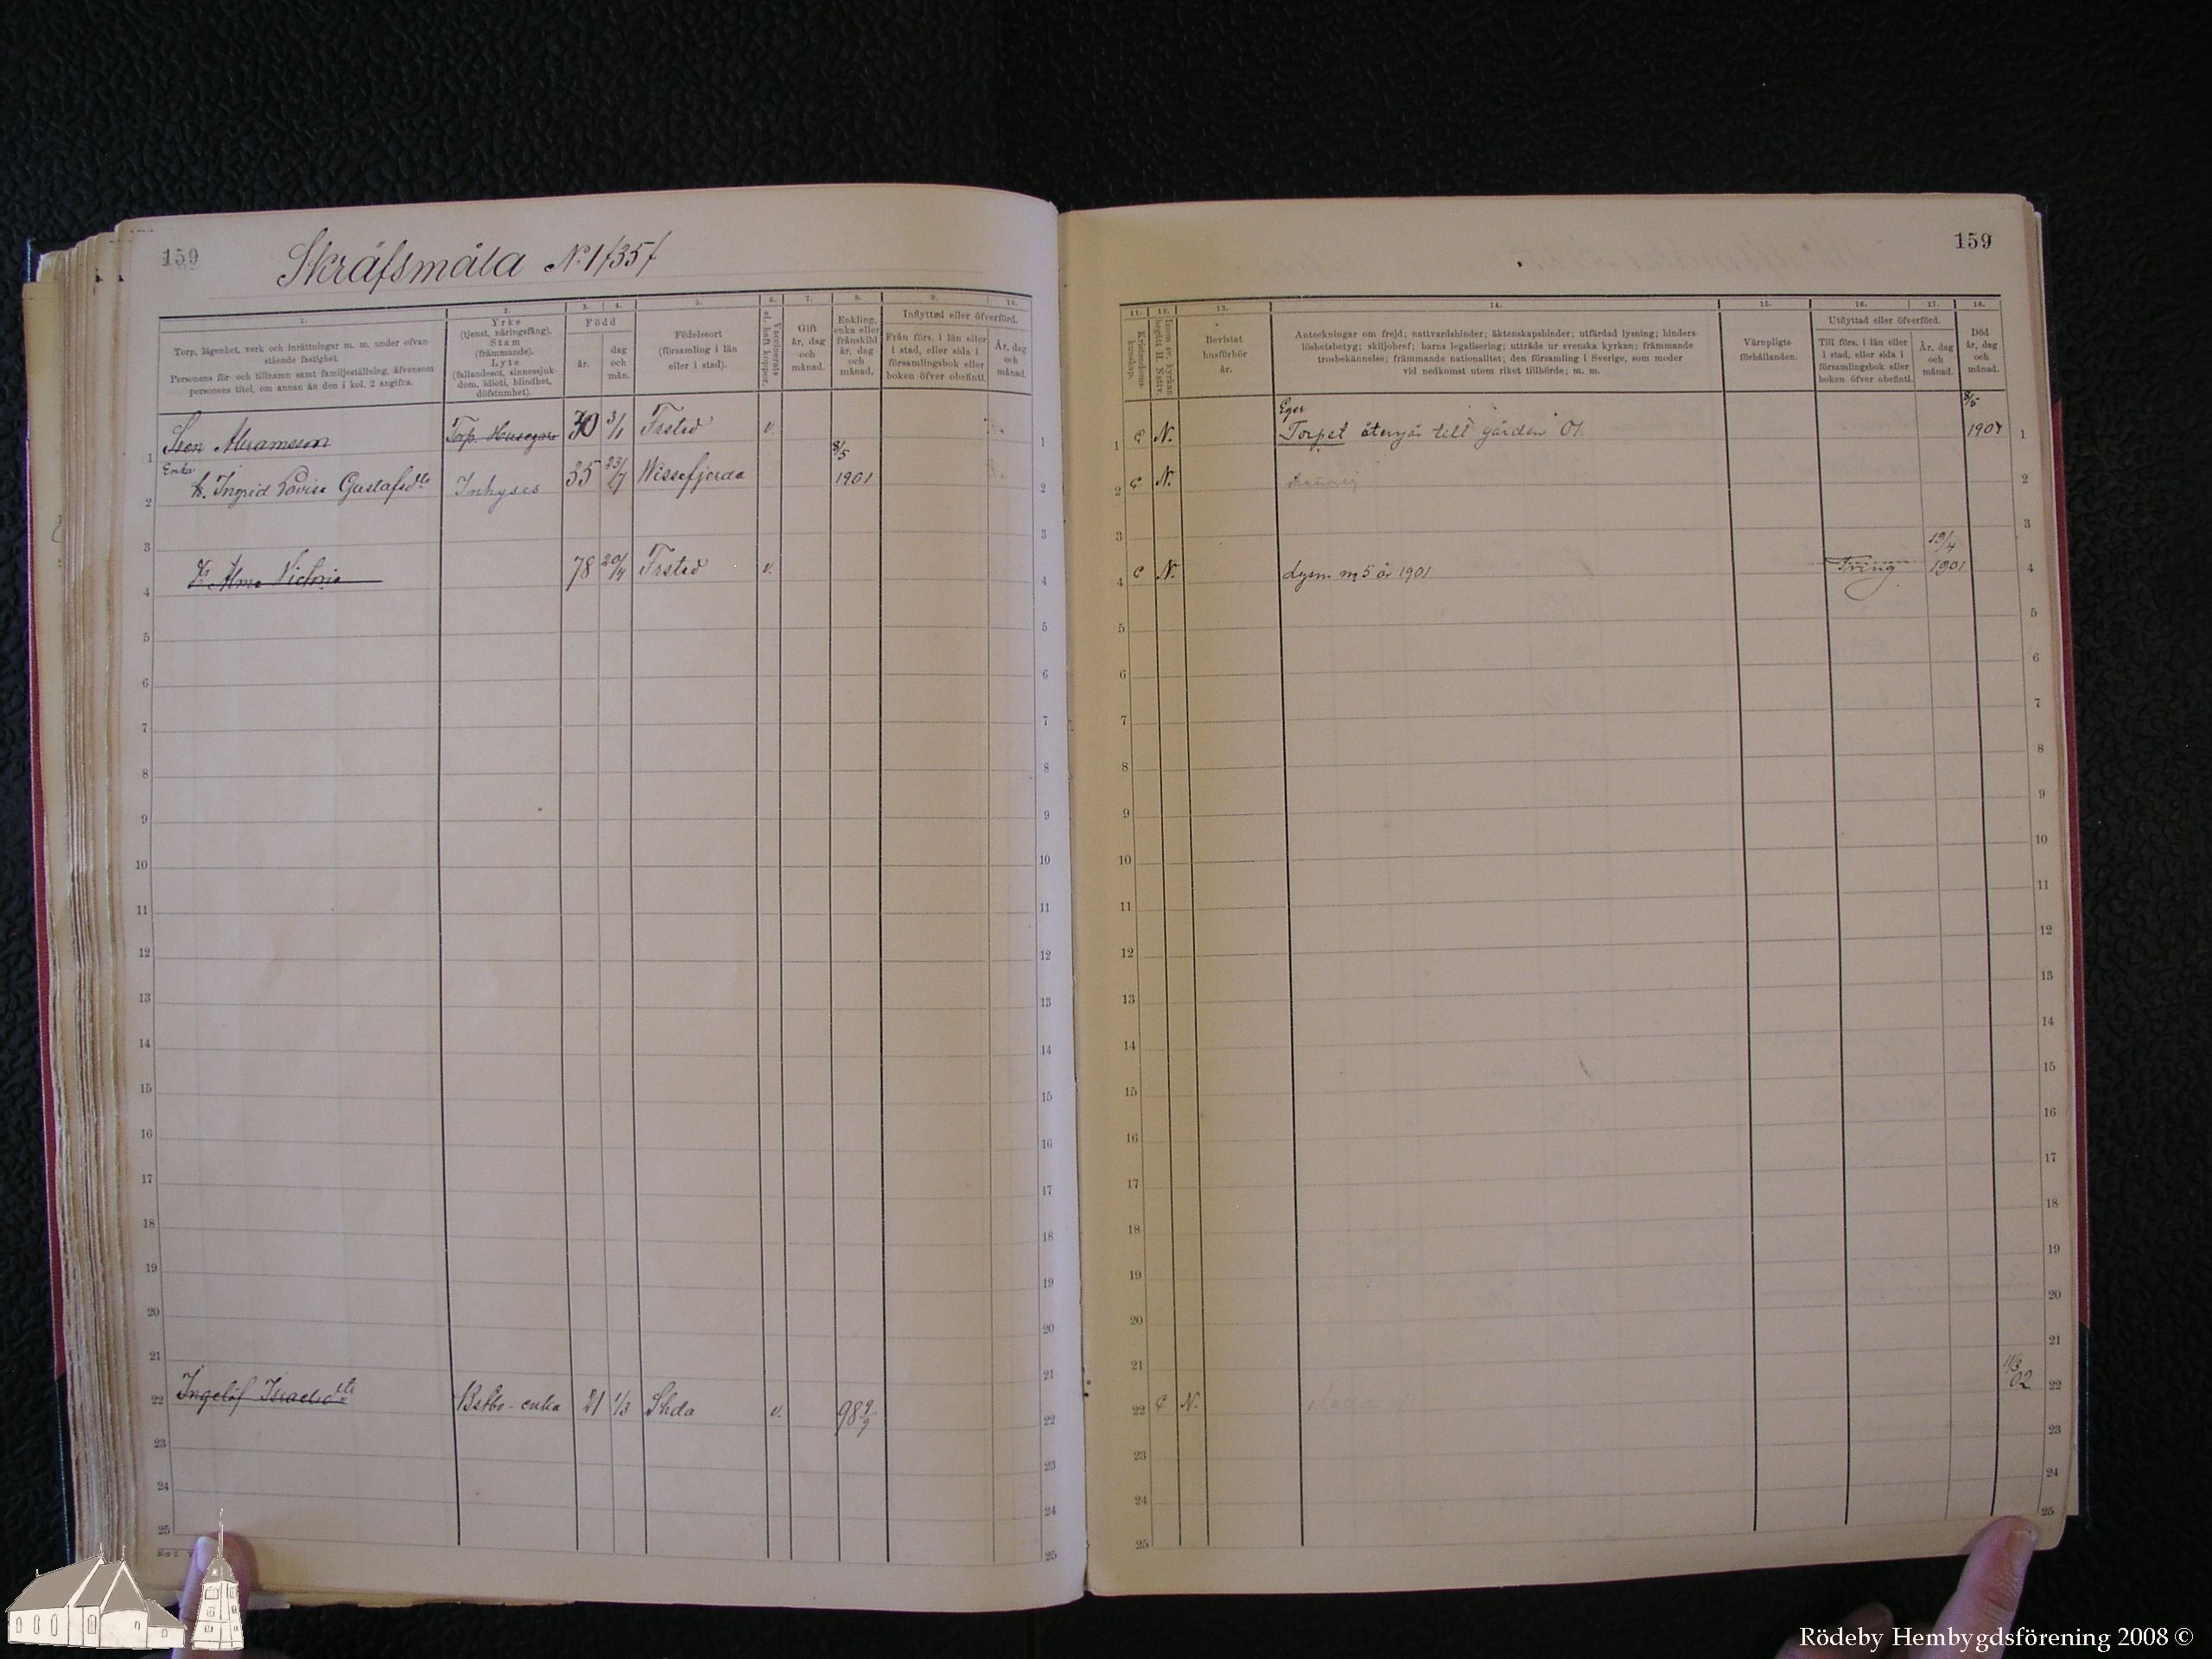 159
Skräfsmåla No 1 /35/
1.
Torp, lägenhet, verk och inrättningar m. m. under ofvan-
stående fastighet.
Personens för- och tillnamn samt familjeställning, äfvensom
personens titel, om annan än den i kol. 2 angifna.
2.
Yrke
(tjenst, näringsfång).
Stam
(främmande).
Lyte
(fallandesot, sinnessjuk-
dom, idioti, blindhet,
döfstumhet).
3. 4.
Född
år.
dag
och
mån.
5.
Födelseort
(församling i län
eller i stad).
6.
Vaccinerats
el. haft koppor.
7.
Gift
år, dag
och
månad.
8.
Enkling,
enka eller
frånskild
år, dag
och
månad.
9. 10.
Inflyttad eller öfverförd.
Från förs. i län eller
i stad, eller sida i
församlingsbok eller
boken öfver obefintl.
År, dag
och
månad.
1 Sven Abramsson Torp. Husegare 30 3/1 Frsted v. 1
Enka 8/5
2 h. Ingrid Lovisa Gustafsdtr Inhyses 35 23/7 Wissefjerda 1901 2
3 3
4 Alma Victoria 78 20/4 Frsted v. 4
5 5
6 6
7 7
8 8
9 9
10 10
11 11
12 12
13 13
14 14
15 15
16 16
17 17
18 18
19 19
20 20
21 21
22 Ingelöf Israelsdtr Bstbo-enka 21 1/3 Shda v. 98 9/9 22
23 23
24 24
25 25
159
11.
Kristendoms-
kunskap.
12.
Inom sv. kyrkan
begått H. Nattv.
13.
Bevistat
husförhör
år.
14.
Anteckningar om frejd; nattvardshinder; äktenskapshinder; utfärdad lysning; hinders-
löshetsbetyg; skiljobref; barns legalisering; utträde ur svenska kyrkan; främmande
trosbekännelse; främmande nationalitet; den församling i Sverige, som moder
vid nedkomst utom riket tillhörde; m. m.
15.
Värnpligts-
förhållanden.
16. 17.
Utflyttad eller öfverförd.
Till förs. i län eller
i stad, eller sida i
församlingsbok eller
boken öfver obefintl.
År, dag
och
månad.
18.
Död
år, dag
och
månad.
Eger 8/5
1 C N. Torpet återgår till gården 01. 1901 1
2 C N. 2
3 19/4 3
4 C N. Lysn no 5 år 1901 Tving 1901 4
5 5
6 6
7 7
8 8
9 9
10 10
11 11
12 12
13 13
14 14
15 15
16 16
17 17
18 18
19 19
20 20
21 11/3 21
22 C N. 02 22
23 23
24 24
25 25
Rödeby Hembygdsförening 2008 ©